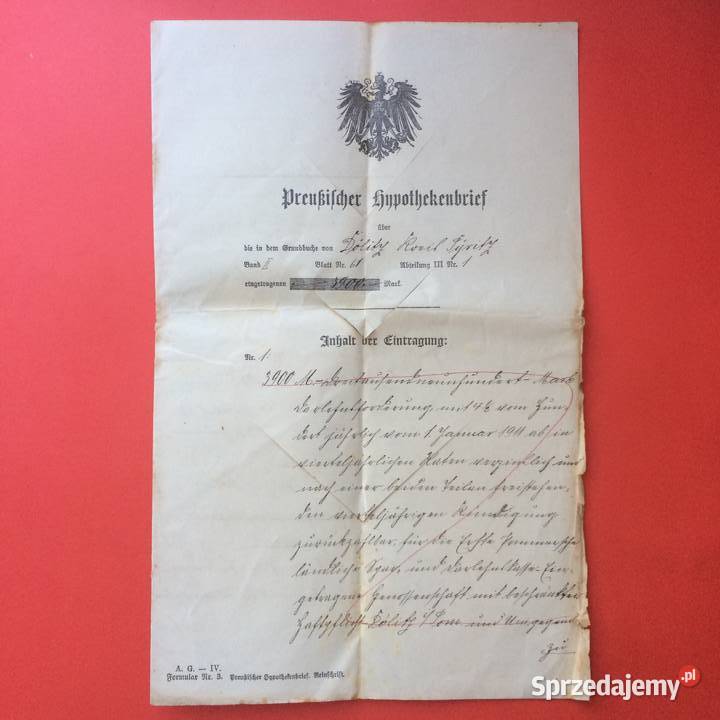 Preußischer Hypothekenbrief
über
die in dem Grundbuche von Dölitz Kreis Pyritz
Band II Blatt Nr. 68 Abteilung III Nr. 1
eingetragenen 3900 Mark.
Inhalt der Eintragung:
Nr. 1:
3900 M - Dreitausendneunhundert - Mark
Darlehnsforderung, mit 4½ vom Hun-
dert jährlich vom 1. Januar 1911 ab in
vierteljährlichen Raten verzinslich und
nach einer beiden Teilen freistehen-
den vierteljährigen Kündigung
zurückzahlbar, für die Erste Pommersche
ländliche Spar- und Darlehnskasse Ein-
getragene Genossenschaft mit beschränkter
Haftpflicht Dölitz i/Pom und Umgegend
zu
A. G. — IV.
Formular Nr. 3. Preußischer Hypothekenbrief. Reinschrift.
Sprzedajemy.pl